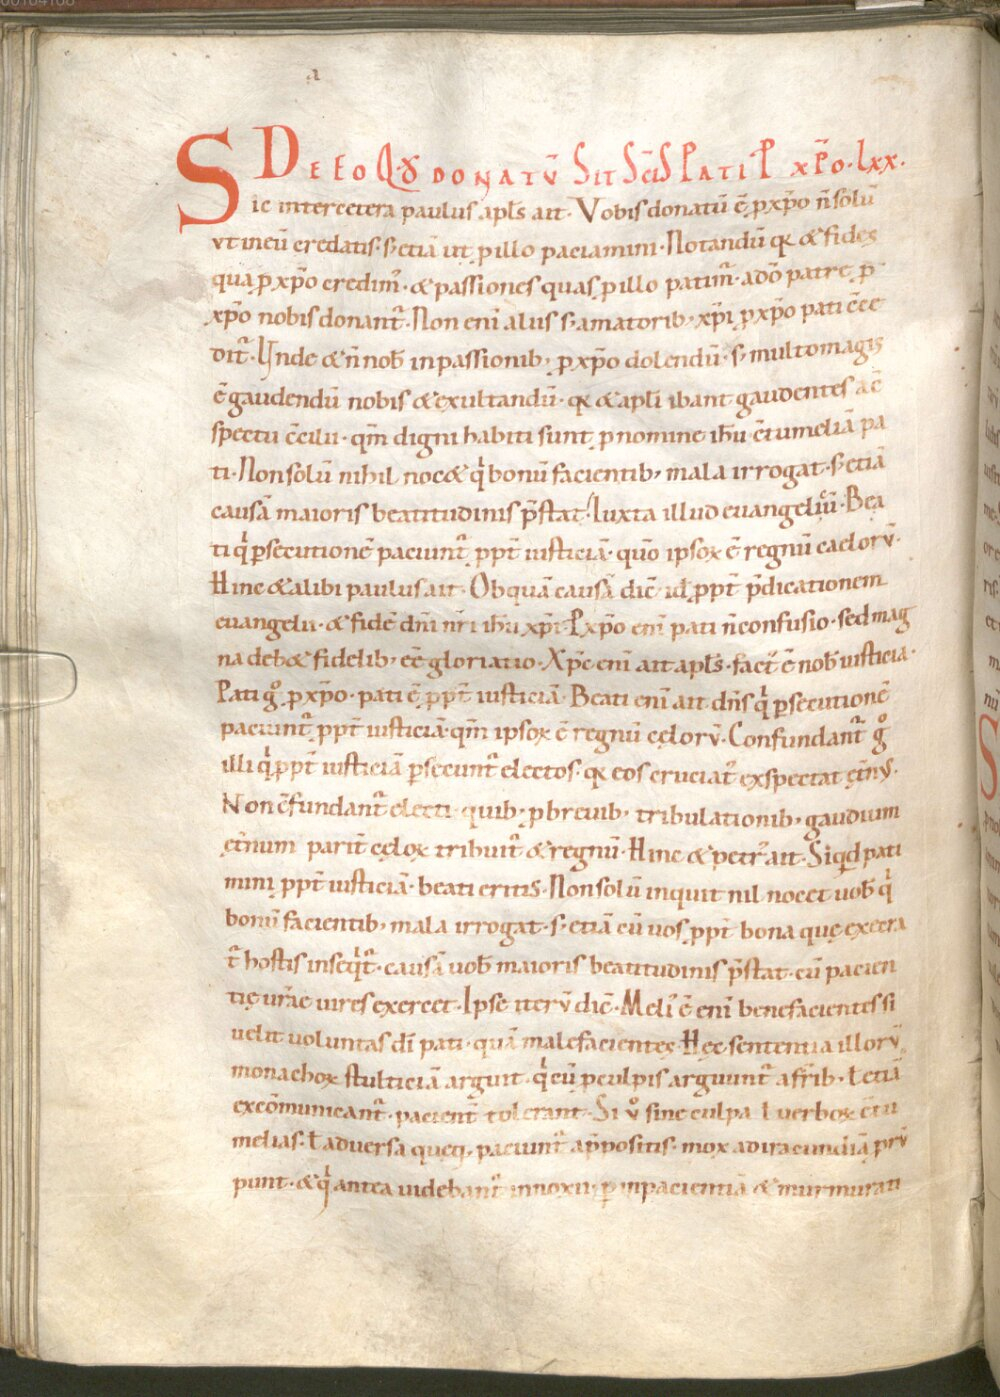 a
De eo qđ donatū sit scīs pati p xp̄o · lxx ·
Sic inter cetera paulus apl̄s ait · Vobis donatū ē p xp̄o n̄ solū
ut in eū credatis · s; etiā ut p illo paciamini · Notandū qꝛ & fides
qua p xp̄o credim᷒ · & passiones quas p illo patim᷒ · a dō patre p
xp̄o nobis donant᷒ · Non eni alius s; amatorib; xp̄i p xp̄o pati c̄ce
dit᷒ · Unde & n̄ nob̄ in passionib; p xp̄o dolendū · s; multo magis
ē gaudendū nobis & exultandū · qꝛ & apl̄i ibant gaudentes a c̄
spectu c̄cilii · qm̄ digni habiti sunt p nomine ih̄u c̄tumeliā pa
ti · Non solū nihil noc& qͥ bonū facientib; mala irrogat · s; etiā
causā maioris beatitudinis p̄stat · Iuxta illud euangelicū · Bea
ti qͥ psecutionē paciunt᷒ ppt̄ iusticiā · quō ipsoꝝ ē regnū caeloꝝ ·
Hinc & alibi paulus ait · Ob quā causā dic̄ · id ppt̄ p̄dicationem
euangelii · & fidē dn̄i nr̄i ih̄u xp̄i · P xp̄o eni pati n̄ confusio · sed mag
na deb& fidelib; ēe gloriatio · Xp̄c eni ait apl̄s · fact᷒ ē nob̄ iusticia ·
Pati gͦ p xp̄o · pati ē ppt̄ iusticiā · Beati eni ait dn̄s qͥ psecutionē
paciunt᷒ ppt̄ iusticiā · qm̄ ipsoꝝ ē regnū cęloꝝ · Confundant᷒ gͦ
illi qͥ ppt̄ iusticiā psecunt᷒ electos · qꝛ eos cruciat᷒ exspectat et̄nꝰ ·
Non c̄fundant᷒ electi quib; p breuib; tribulationib; gaudium
et̄num parit᷒ cęloꝝ tribuit᷒ & regnū · Hinc & petr᷒ ait · Si qid pati
mini ppt̄ iusticiā · beati eritis · Non solū inquit nil nocet uob̄ qͥ
bonū facientib; mala irrogat · s; etiā cū uos ppt̄ bona quę exeera
t᷒ hostis inseqͥt᷒ · causā uob̄ maioris beatitudinis p̄stat · cū pacien
tię ur̄ae uires exercet · Ipse iterū dic̄ · Meli᷒ ē eni benefacientes si
uelit uoluntas dī pati · quā malefacientes · Hęc sententia illorū
monachoꝝ stulticiā arguit · qͥ cū p culpis arguunt᷒ a fr̄ib; ł etiā
excōmunicant᷒ · pacient᷒ tolerant · Si uͦ sine culpa ł uerboꝝ c̄tu
melias · ł aduersa quęq; paciunt᷒ app̄ositis · mox ad iracundiā prū
punt · & qͥ antea uidebant᷒ innoxii · p inpacientiā & murmurati